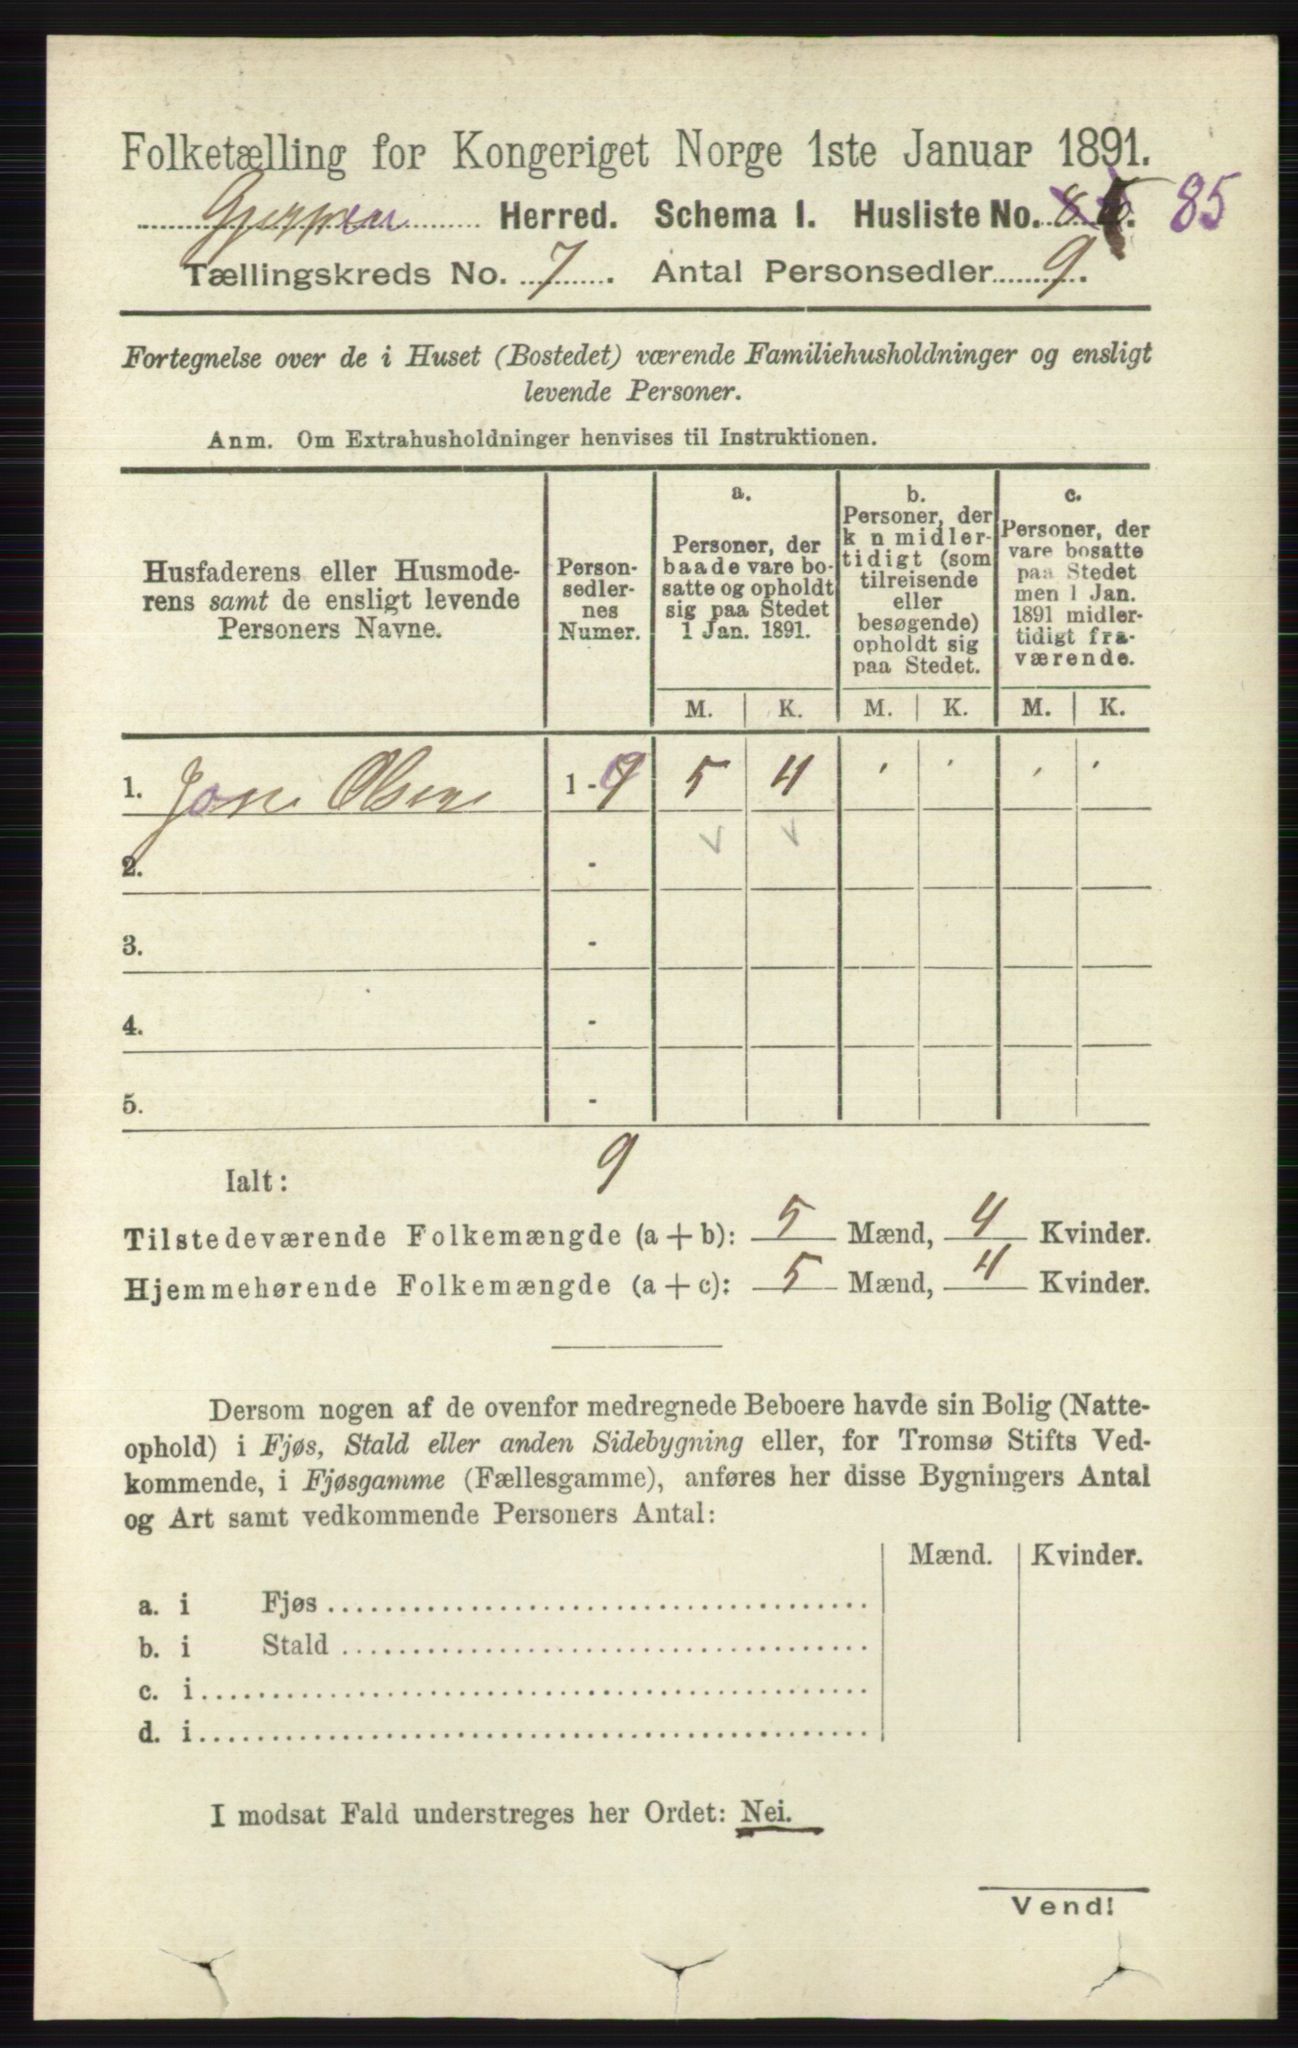 Folketælling for Kongeriget Norge 1ste Januar 1891.
Gjerpen Herred. Schema I. Husliste No. 85
Tællingskreds No. 7. Antal Personsedler 9.
Fortegnelse over de i Huset (Bostedet) værende Familiehusholdninger og ensligt
levende Personer.
Anm. Om Extrahusholdninger henvises til Instruktionen.
Husfaderens eller Husmode-
rens samt de ensligt levende
Personers Navne.
Person-
sedler-
nes
Numer.
a.
Personer, der
baade vare bo-
satte og opholdt
sig paa Stedet
1 Jan. 1891.
b.
Personer, der
k n midler-
tidigt (som
tilreisende
eller
besøgende)
opholdt sig
paa Stedet.
c.
Personer, der
vare bosatte
paa Stedet
men 1 Jan.
1891 midler-
tidigt fra-
værende.
M. K. M. K. M. K.
1. Olsen 1 - 9 5 4
2. -
3. -
4. -
5. -
Ialt: 9
Tilstedeværende Folkemængde (a + b): 5 Mænd, 4 Kvinder.
Hjemmehørende Folkemængde (a + c): 5 Mænd, 4 Kvinder.
Dersom nogen af de ovenfor medregnede Beboere havde sin Bolig (Natte-
ophold) i Fjøs, Stald eller anden Sidebygning eller, for Tromsø Stifts Ved-
kommende, i Fjøsgamme (Fællesgamme), anføres her disse Bygningers Antal
og Art samt vedkommende Personers Antal:
Mænd. Kvinder.
a. i Fjøs
b. i Stald
c. i
d. i
I modsat Fald understreges her Ordet: Nei.
Vend!